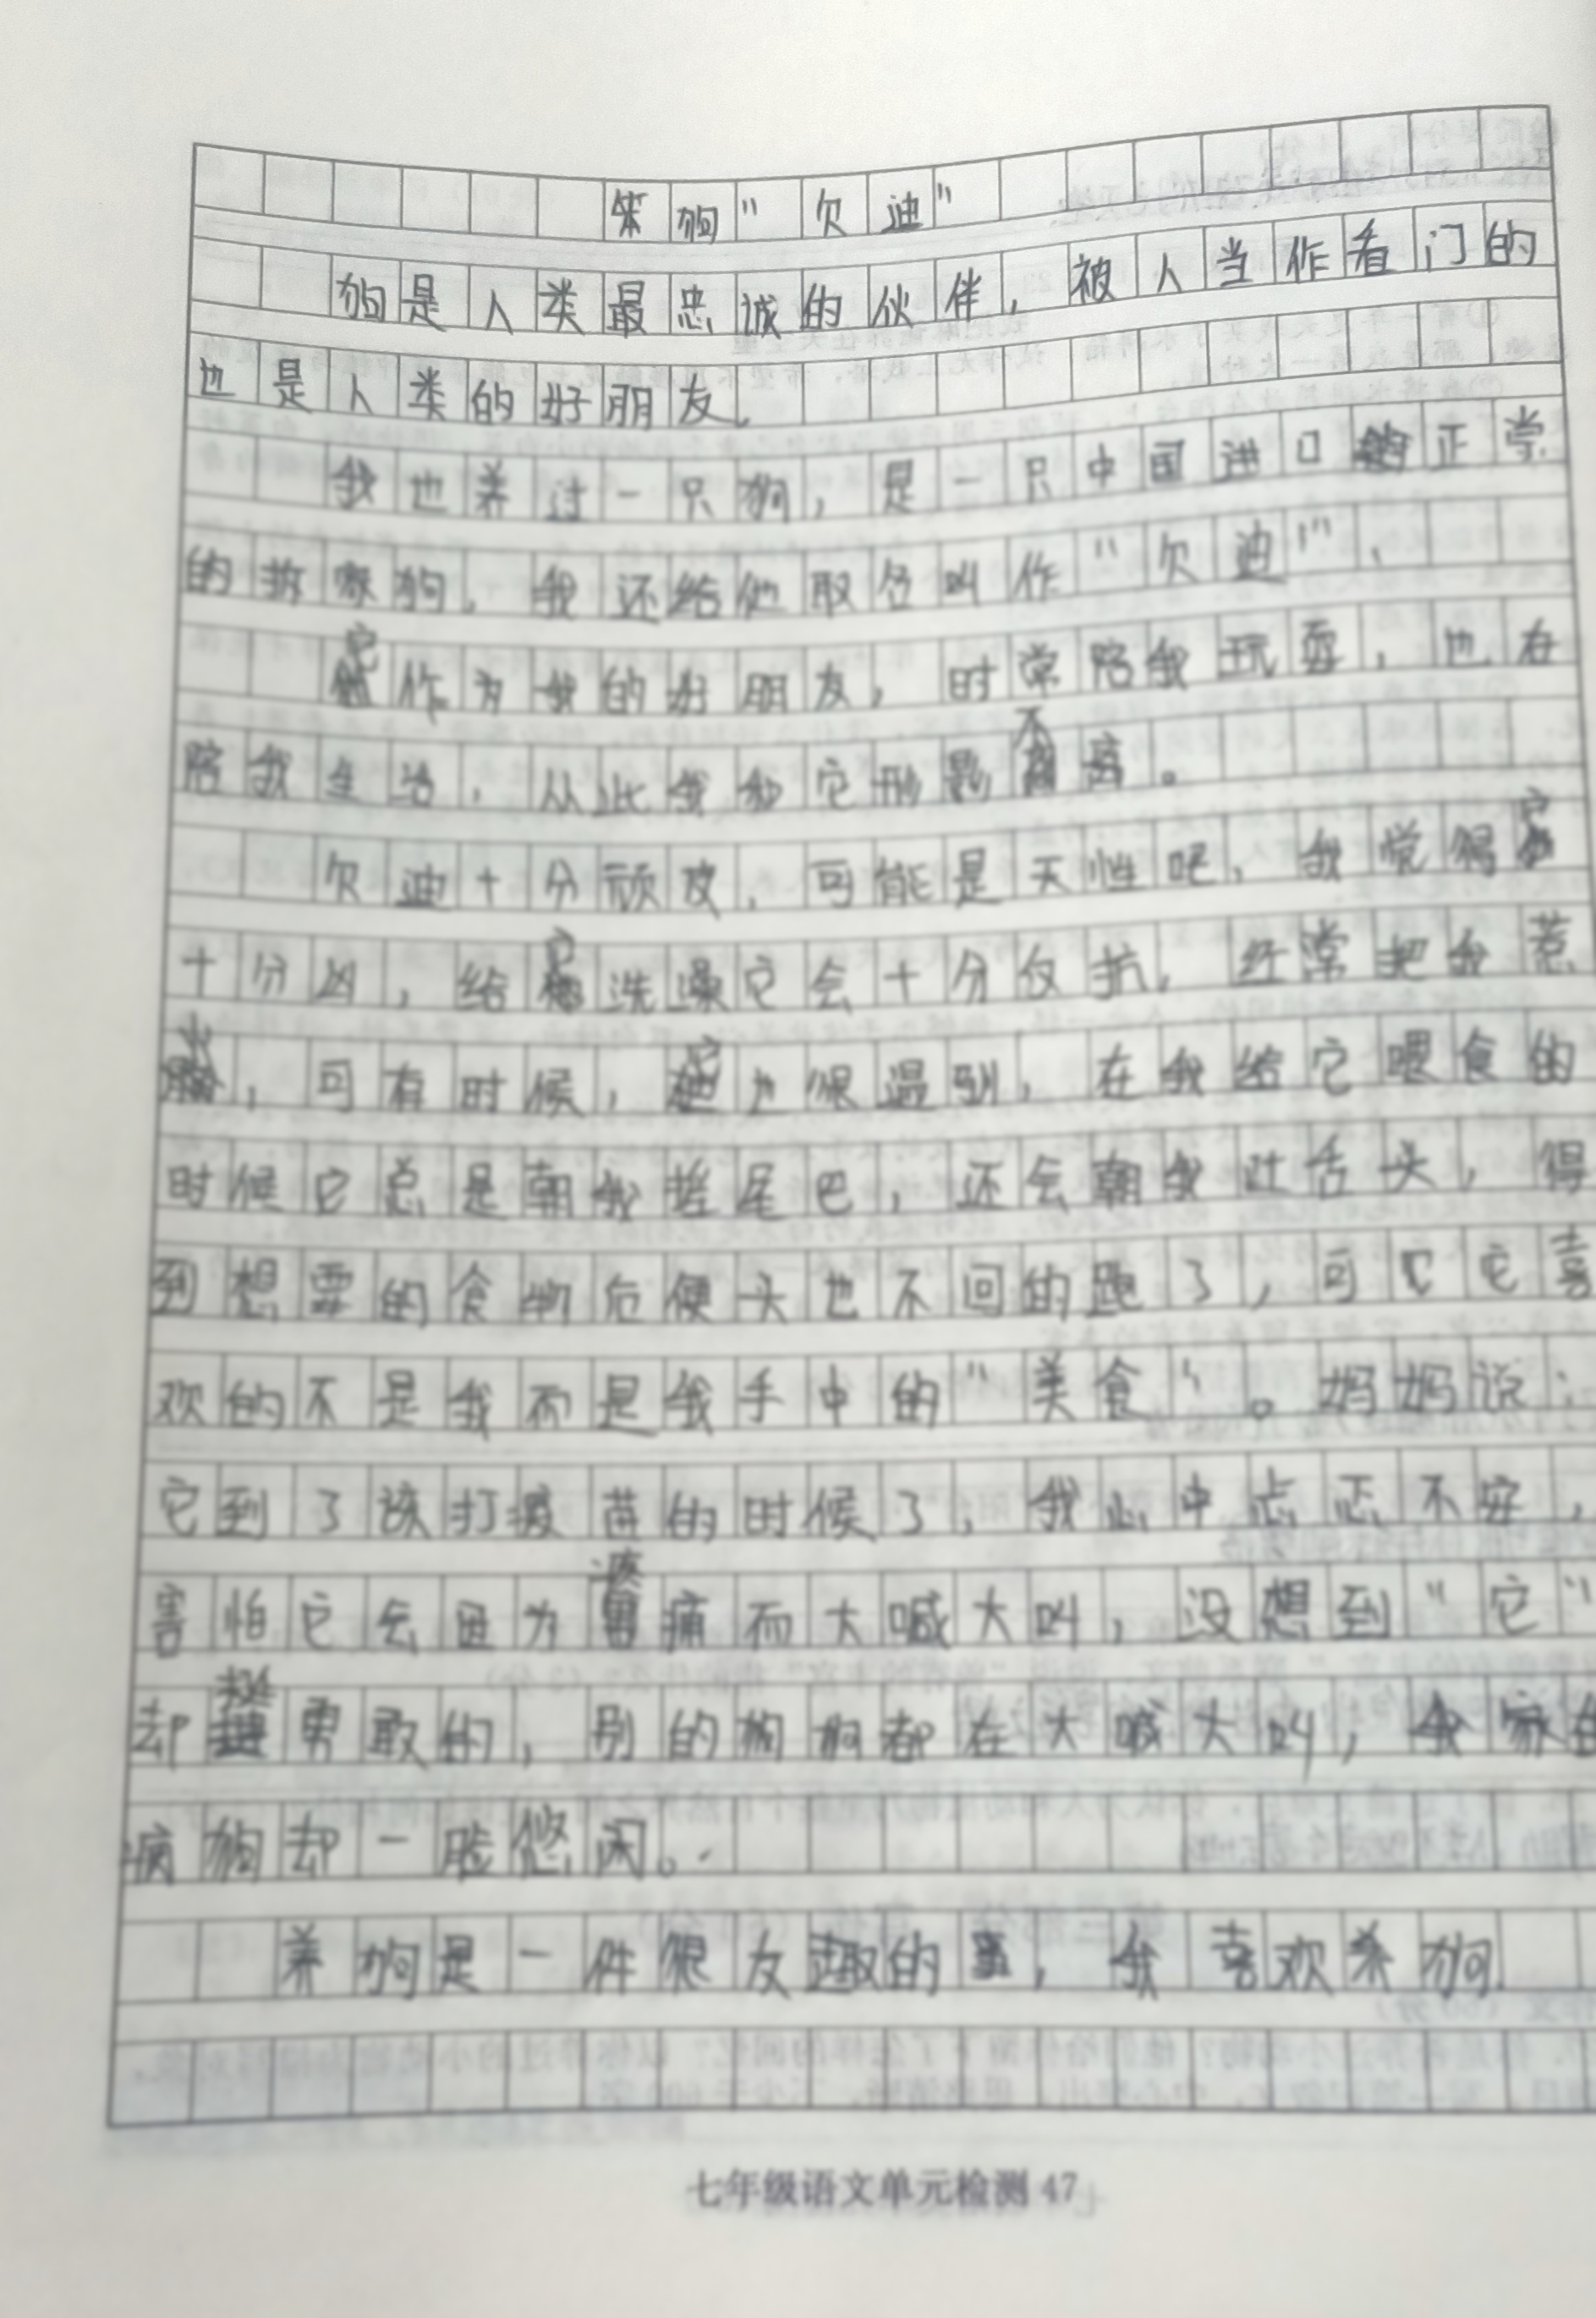 笨狗"欠迪"
狗是人类最忠诚的伙伴，被人当作看门的
也是人类的好朋友。
我也养过一只狗，是一只中国进口的正常
的拆家狗，我还给他取名叫作"欠迪"，
它作为我的好朋友，时常陪我玩耍，也在
陪我生活，从此我和它形影不离。
欠迪十分顽皮，可能是天性吧，我觉得它
十分凶，给它洗澡它会十分反抗，经常把我惹
火，可有时候，它也很温驯，在我给它喂食的
时候它总是朝我摇尾巴，还会朝我吐舌头，得
到想要的食物后便头也不回的跑了，可见它喜
欢的不是我而是我手中的"美食"。妈妈说：
它到了该打疫苗的时候了，我心中忐忑不安，
害怕它会因为疼痛而大喊大叫，没想到"它"
却挺勇敢的，别的狗狗都在大喊大叫，我家的
狗却一脸悠闲。
养狗是一件很友趣的事，我喜欢养狗.
七年级语文单元检测 47